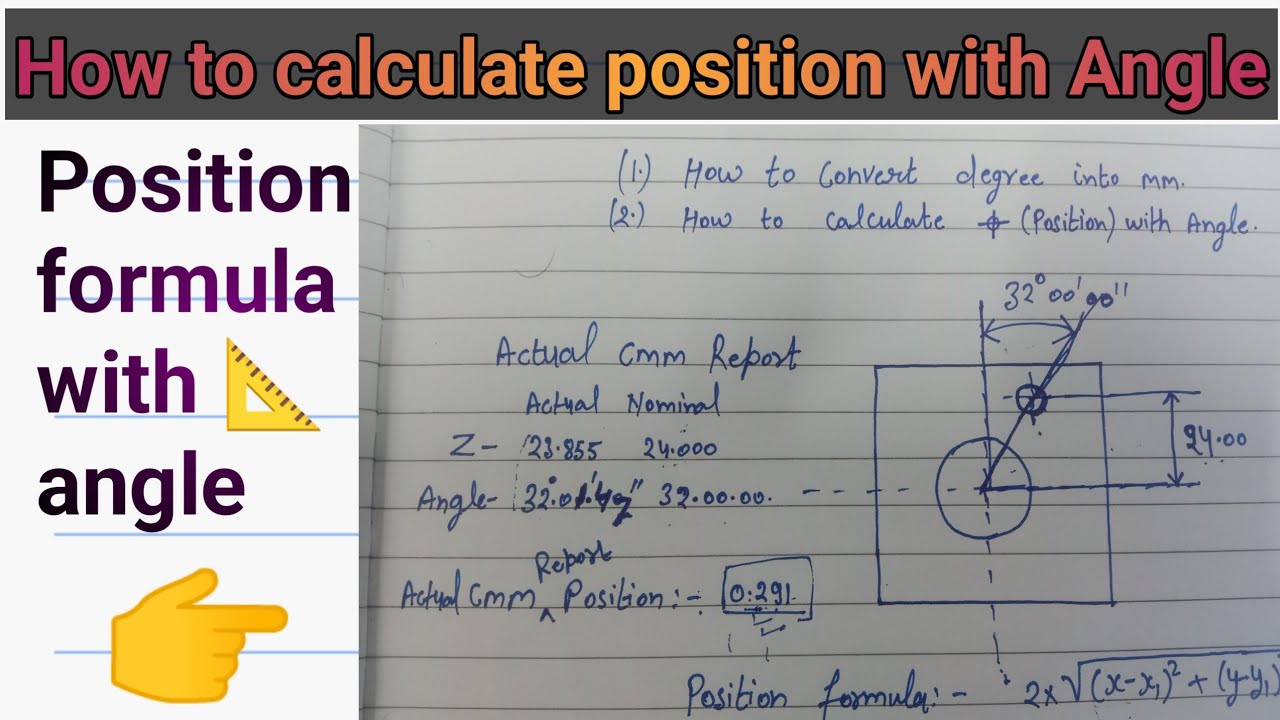 How to calculate position with Angle
Position
formula
with
angle
(1.) How to Convert degree into mm.
(2.) How to calculate ⌖ (Position) with Angle.
32°00'00"
Actual Cmm Report
Actual Nominal
Z- 23.855 24.000
Angle- 32°.01'. 32.00.00.
24.00
Report
Actual Cmm ^ Position:- 0.291
Position formula:- 2×√(x-x₁)² + (y-y₁)